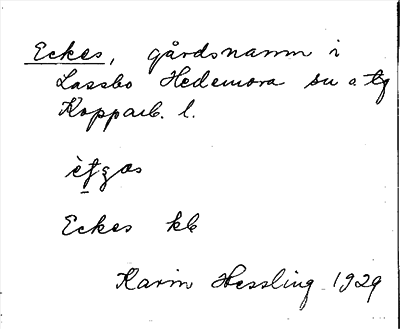 Eckes, gårdsnamn i
Lassbo Hedemora sn o. tg
Kopparb. l.
Eckes kb
Karin Hessling 1929